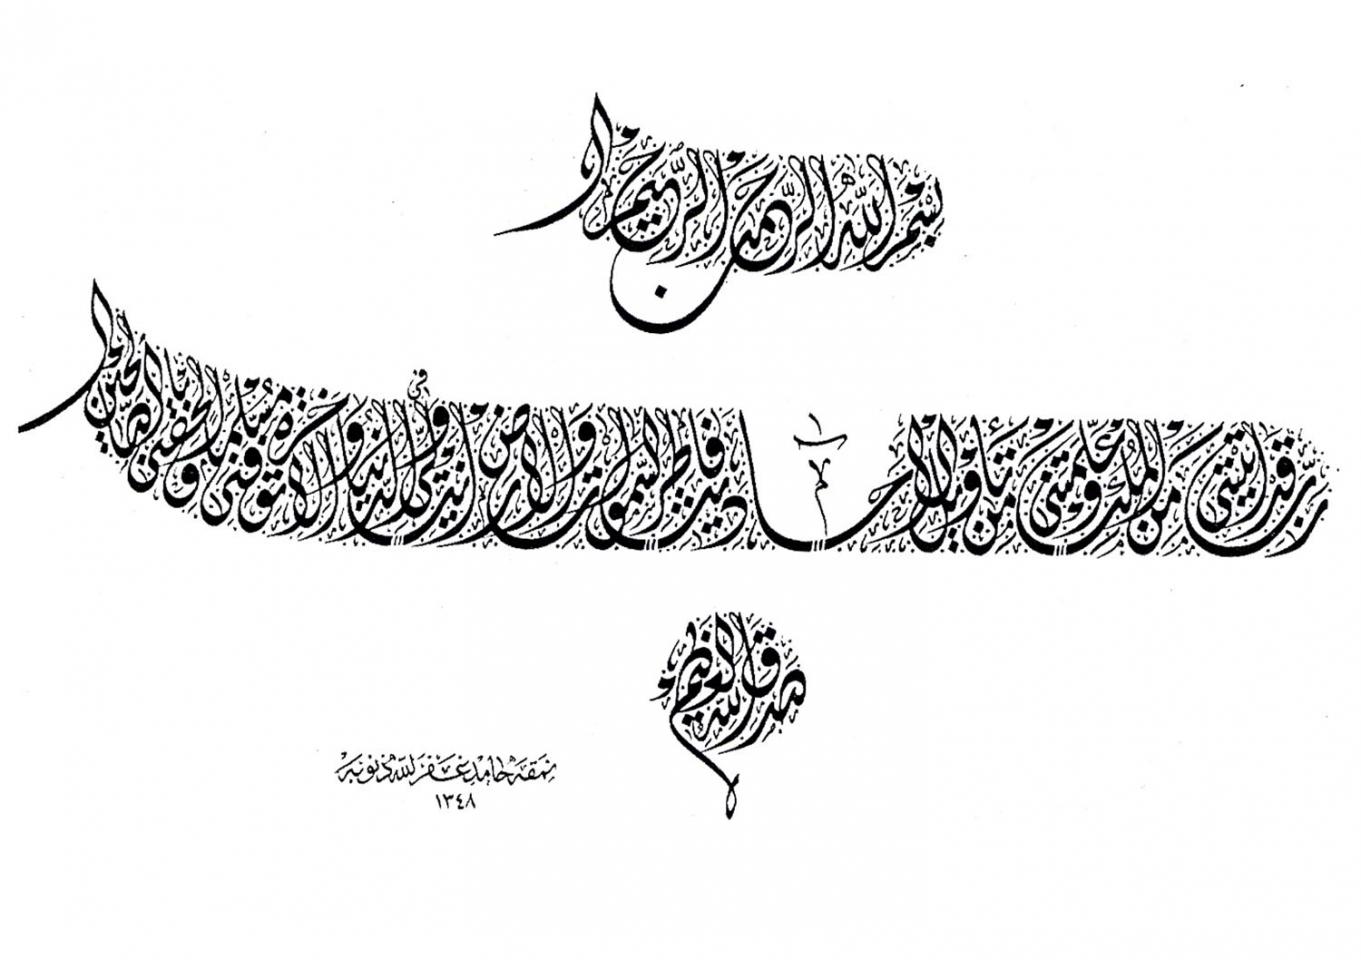 بسم الله الرحمن الرحيم
رب قد آتيتني من الملك وعلمتني من تأويل الأحاديث فاطر السموات والأرض أنت وليي في الدنيا والآخرة توفني مسلما وألحقني بالصالحين
صدق الله العظيم
نمقه حامد غفر الله ذنوبه
١٣٤٨